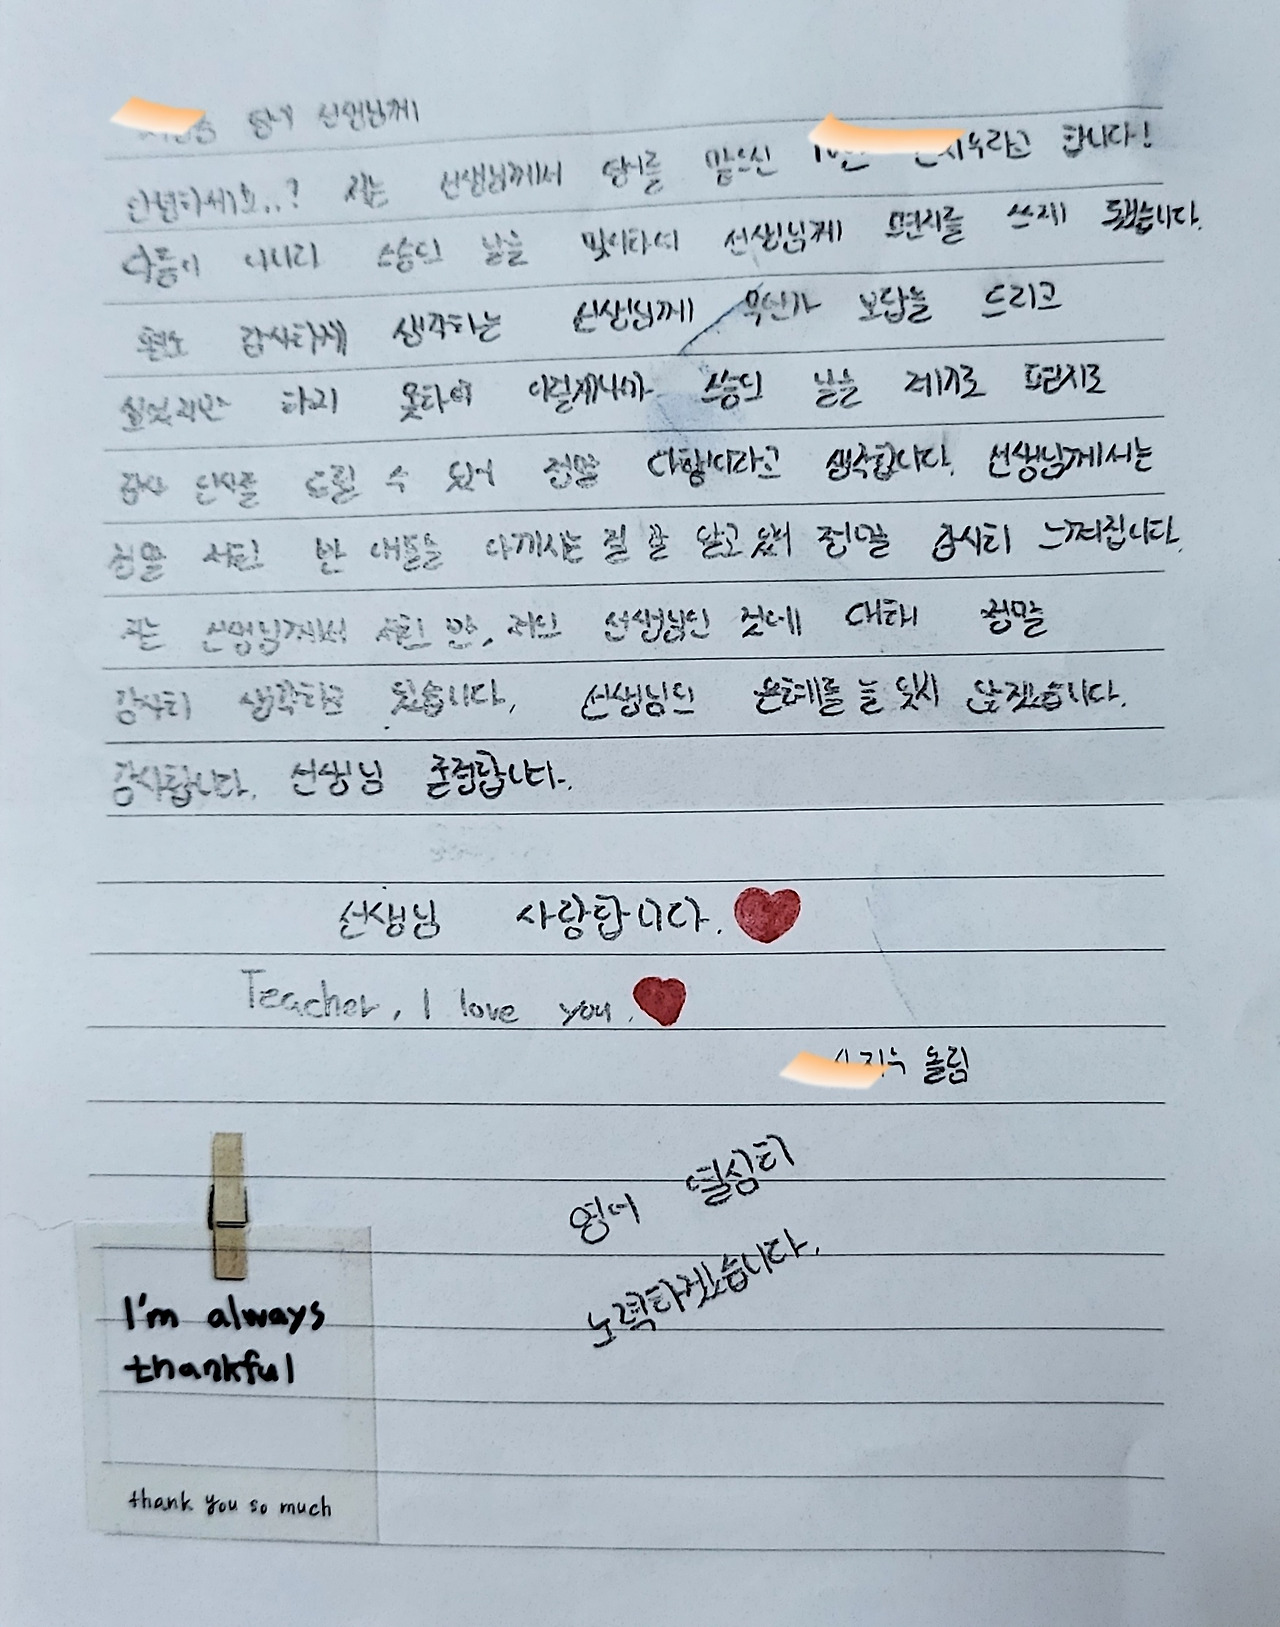 담임 선생님께
안녕하세요..? 저는 선생님께서 담임을 맡으신 라고 합니다!
다름이 아니라 스승의 날을 맞이하여 선생님께 편지를 쓰게 됐습니다.
평소 감사하게 생각하는 선생님께 무언가 보답을 드리고
싶었지만 하지 못하여 이렇게나마 스승의 날을 계기로 편지로
감사 인사를 드릴 수 있어 정말 다행이라고 생각합니다. 선생님께서는
정말 저희 반 애들을 아끼시는 걸 잘 알고 있어 정말 감사히 느껴집니다.
저는 선생님께서 저희 반, 저의 선생님인 것에 대해 정말
감사히 생각하고 있습니다. 선생님의 은혜를 늘 잊지 않겠습니다.
감사합니다. 선생님 존경합니다.
선생님 사랑합니다.
Teacher, I love you.
올림
영어 열심히
노력하겠습니다.
I'm always
thankful
thank you so much